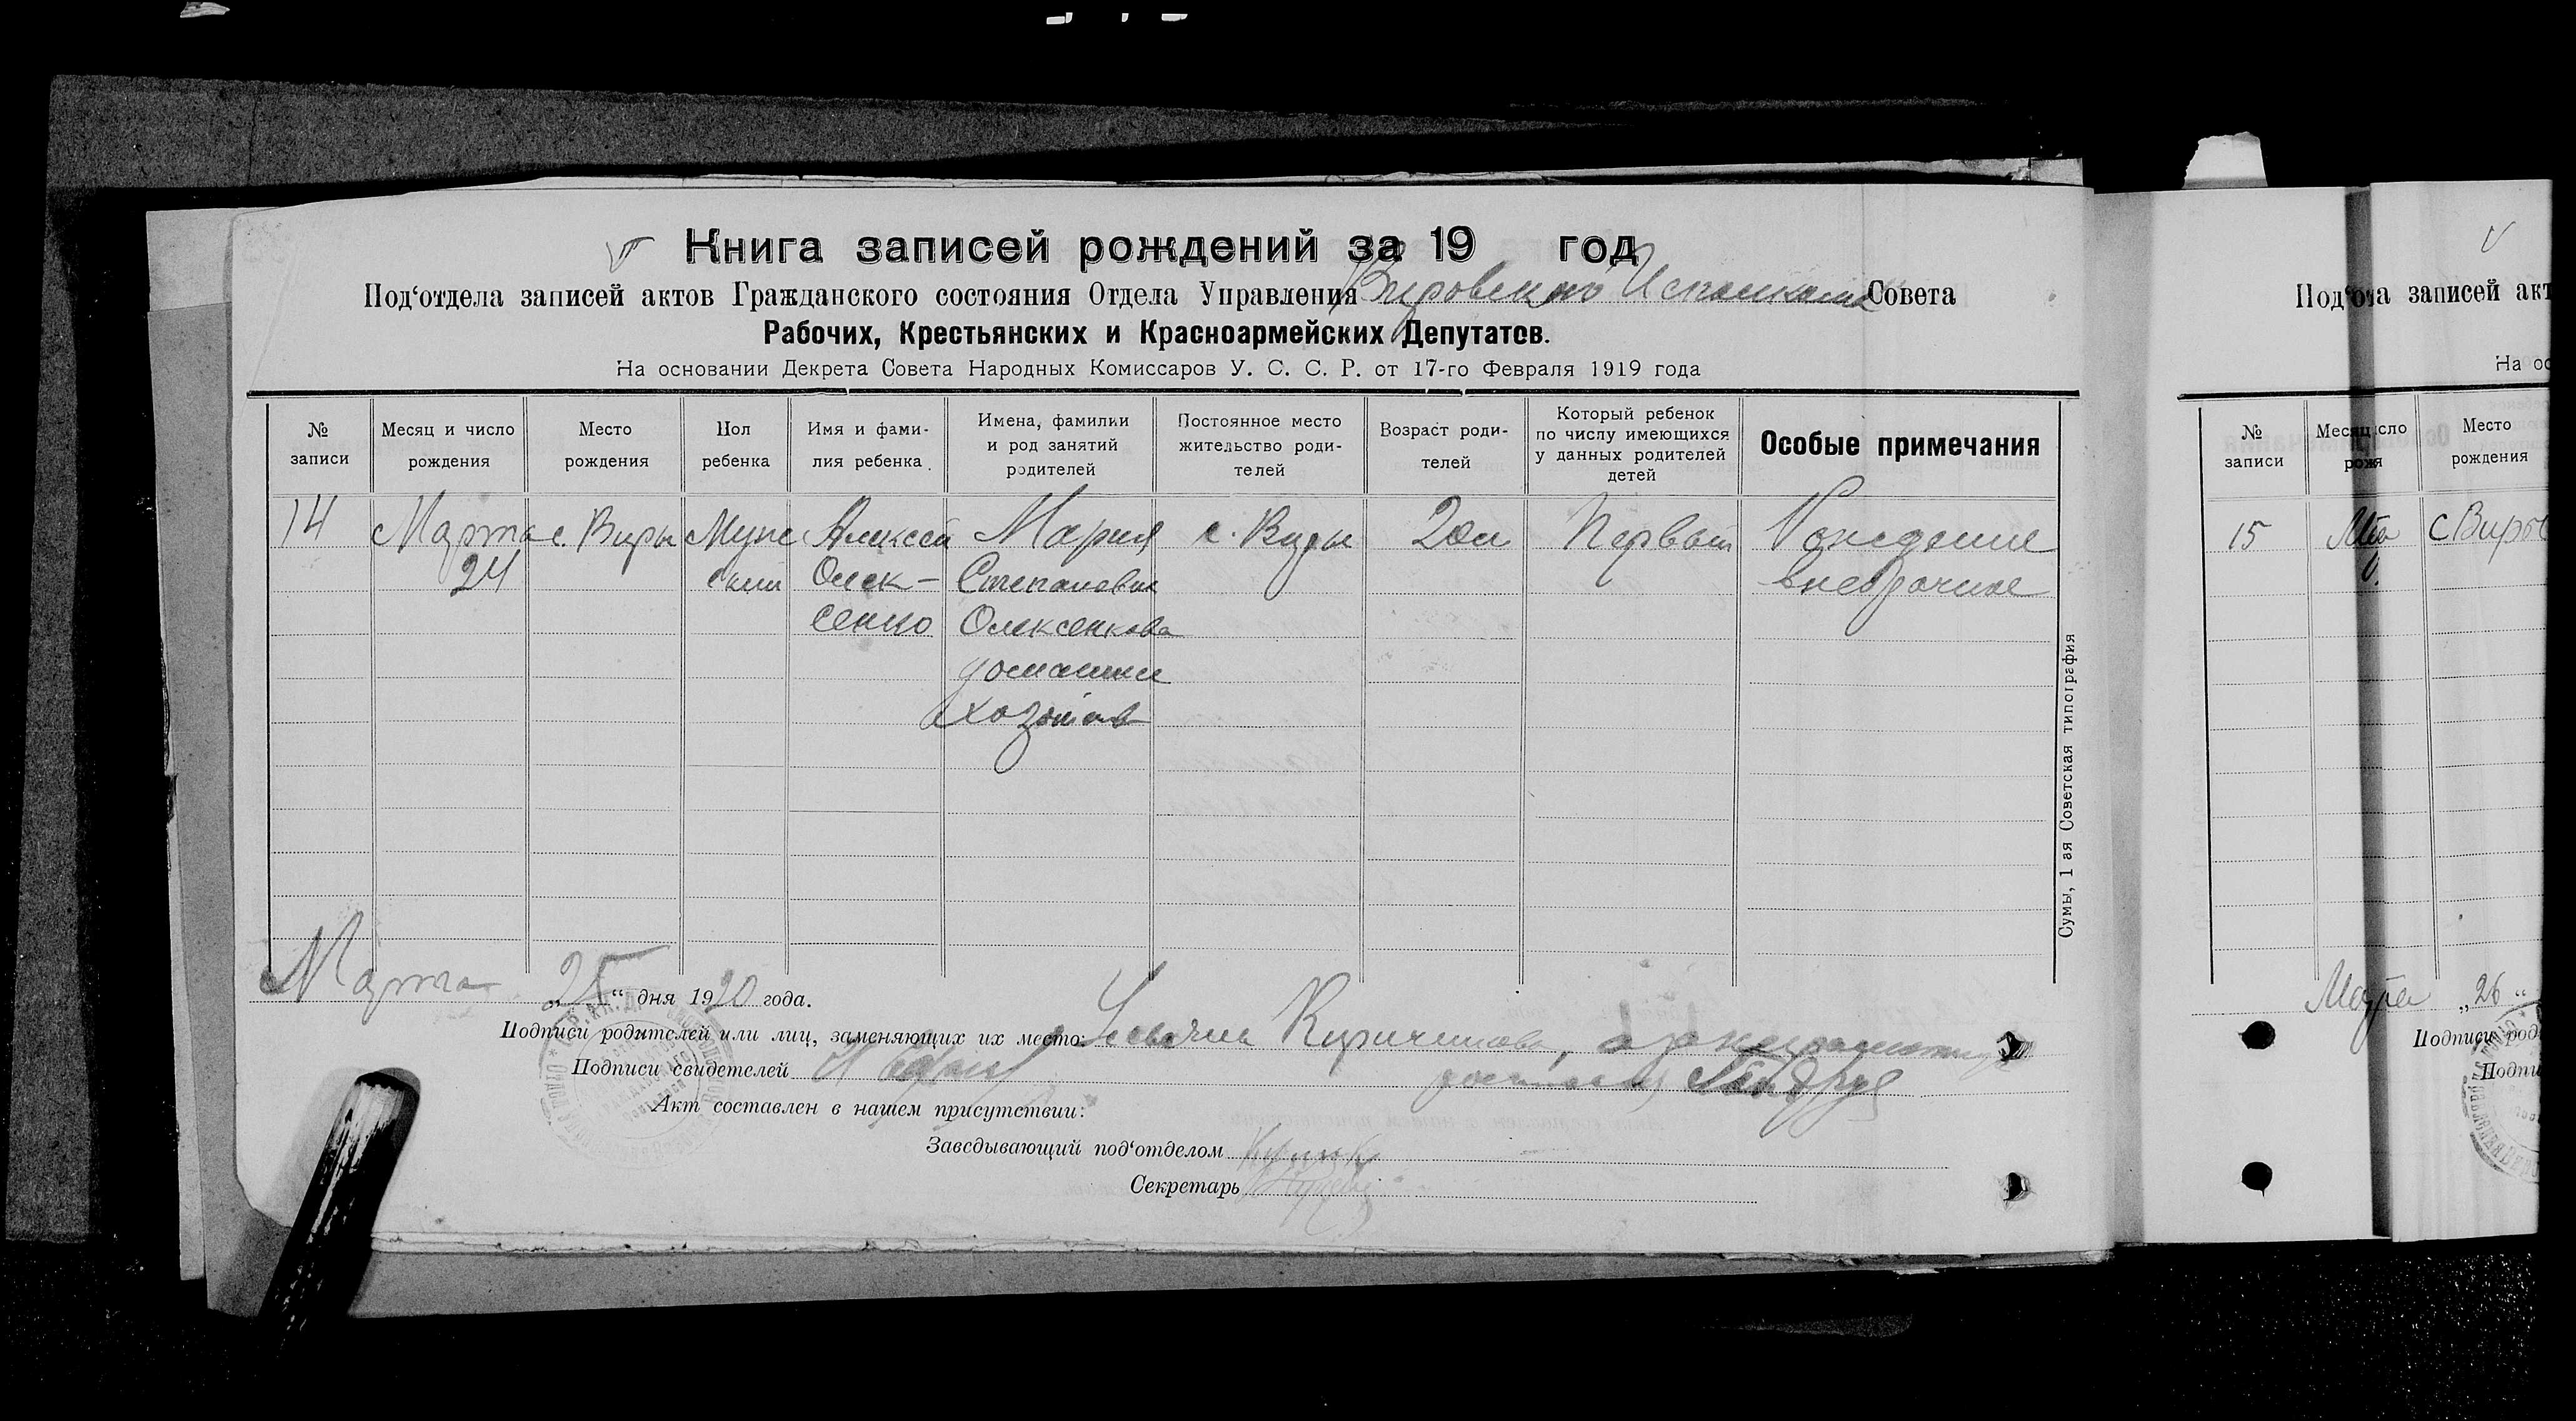 Книга записей рождений за 19 год
Под‘отдела записей актов Гражданского состояния Отдела Управления Вировского Исполкома Совета
Рабочих, Крестьянских и Красноармейских Депутатов.
На основании Декрета Совета Народных Комиссаров У. С. С. Р. от 17-го Февраля 1919 года
№ записи
Месяц и число рождения
Место рождения
Пол ребенка
Имя и фамилия ребенка
Имена, фамилии и род занятий родителей
Постоянное место жительство родителей
Возраст родителей
Который ребенок по числу имеющихся у данных родителей детей
Особые примечания
14 Марта с. Виры Муж Алексей Мария с. Виры 20 л Первый Рождение
24 ский Олек- Степановна внебрачное
сенко Олексенкова
домашнее
хозяйств
Сумы, 1 ая Советская типография
Марта „25“ дня 1920 года.
Подписи родителей или лиц, заменяющих их место: Кириченкова,
Подписи свидетелей
Акт составлен в нашем присутствии:
Заведывающий под‘отделом
Секретарь
Под‘о а записей акт
На ос
№ записи
Место рождения
15 с Виры
Марта „26“
Подписи род
Подпи